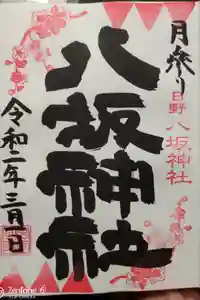 月参り
日野八坂神社
八坂神社
令和二年三月
Zenfone 6